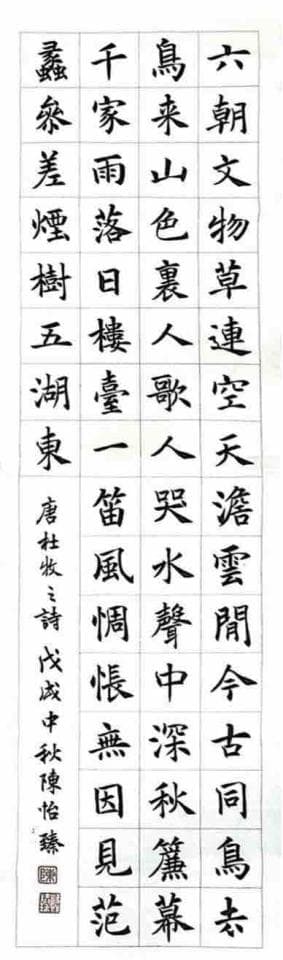 六朝文物草連空天澹雲閒今古同鳥去
鳥来山色裏人歌人哭水聲中深秋簾幕
千家雨落日樓臺一笛風惆悵無因見范
蠡參差煙樹五湖東
唐杜牧之詩戊戌中秋陳怡臻